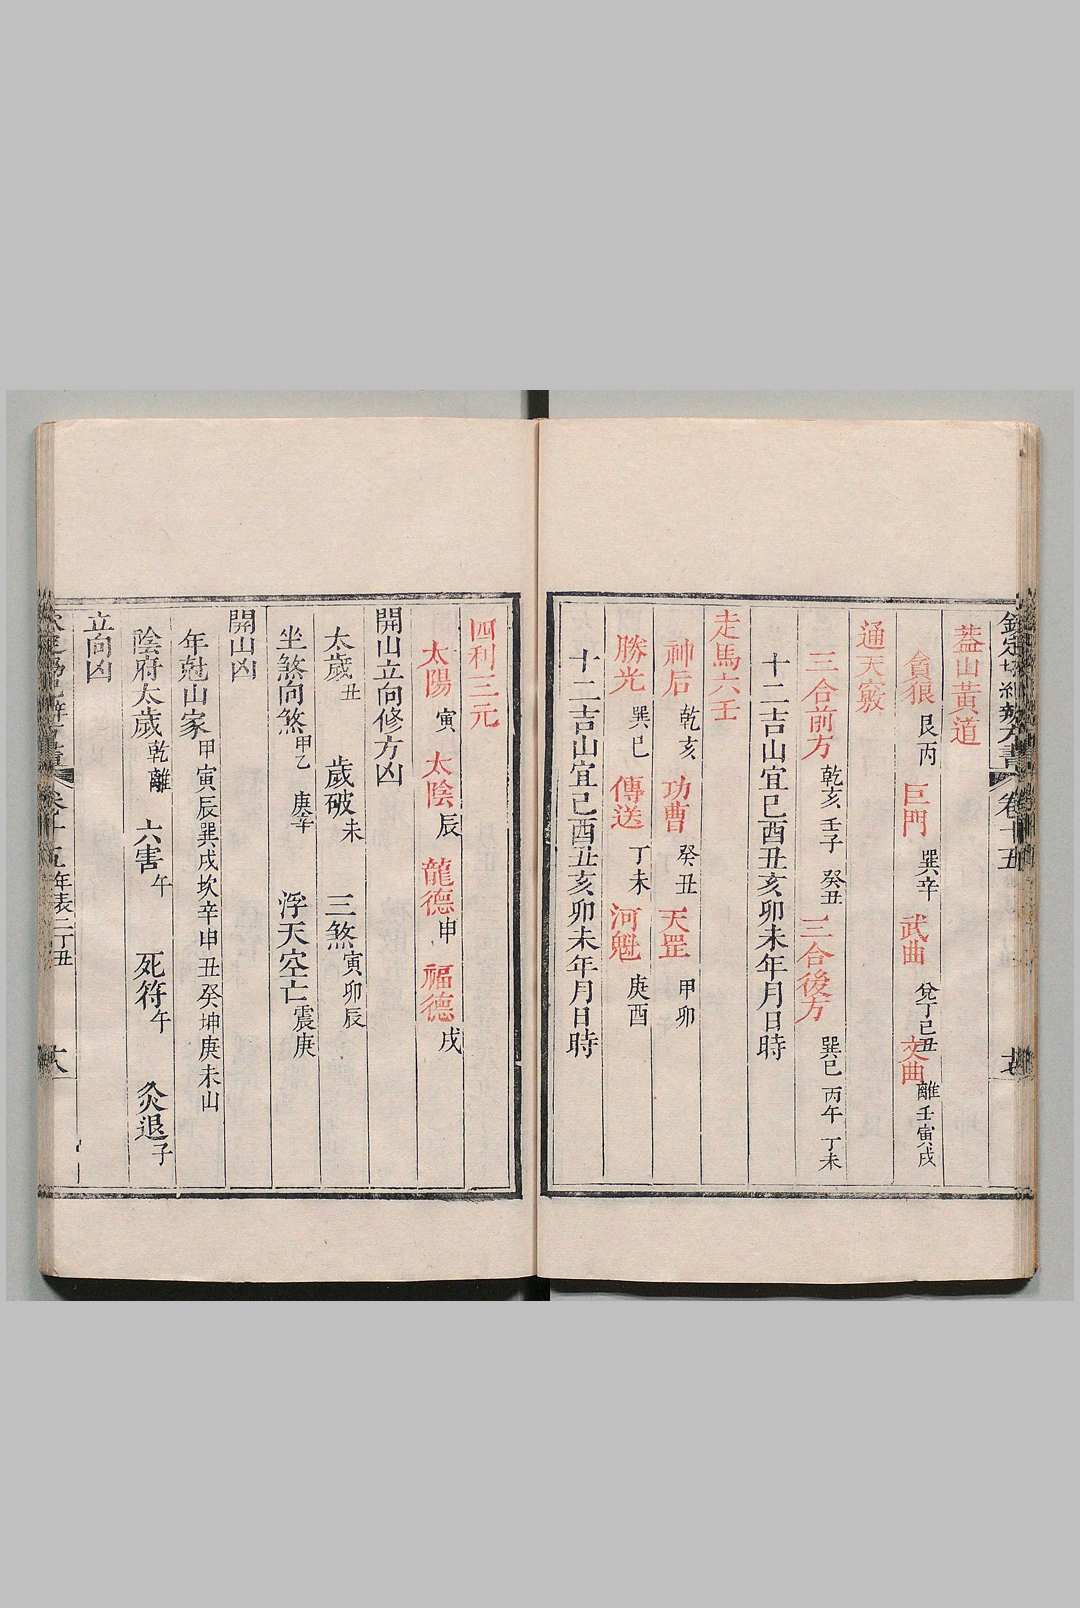 欽定協紀辨方書 卷十五
蓋山黃道
貪狼 艮丙 巨門 巽辛 武曲 兌丁巳丑 文曲 離壬寅戌
通天竅
三合前方 乾亥 壬子 癸丑 三合後方 巽巳 丙午 丁未
十二吉山宜巳酉丑亥卯未年月日時
走馬六壬
神后 乾亥 功曹 癸丑 天罡 甲卯
勝光 巽巳 傳送 丁未 河魁 庚酉
十二吉山宜巳酉丑亥卯未年月日時
四利三元
太陽 寅 太陰 辰 龍德 申 福德 戌
開山立向修方凶
太歲 丑 歲破 未 三煞 寅卯辰
坐煞向煞 甲乙 庚辛 浮天空亡 震庚
開山凶
年尅山家 甲寅辰巽戌坎辛申丑癸坤庚未山
陰府太歲 乾離 六害 午 死符 午 灸退 子
立向凶
卷十五 年表二 丁丑